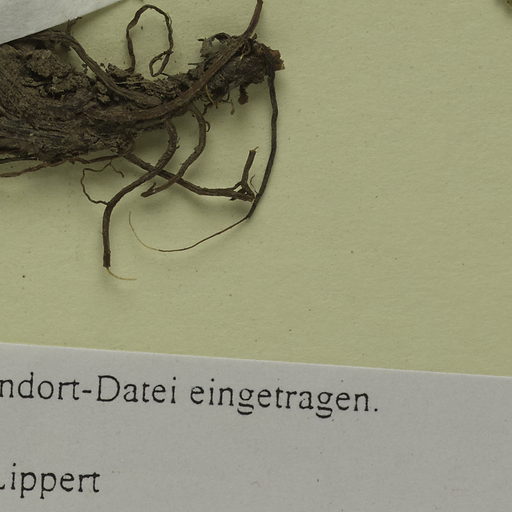 ndort-Datei eingetragen.
Lippert